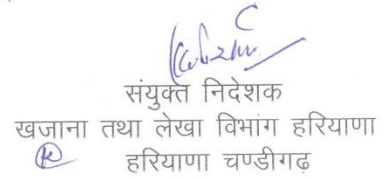 संयुक्त निदेशक
खजाना तथा लेखा विभाग हरियाणा
हरियाणा चण्डीगढ़